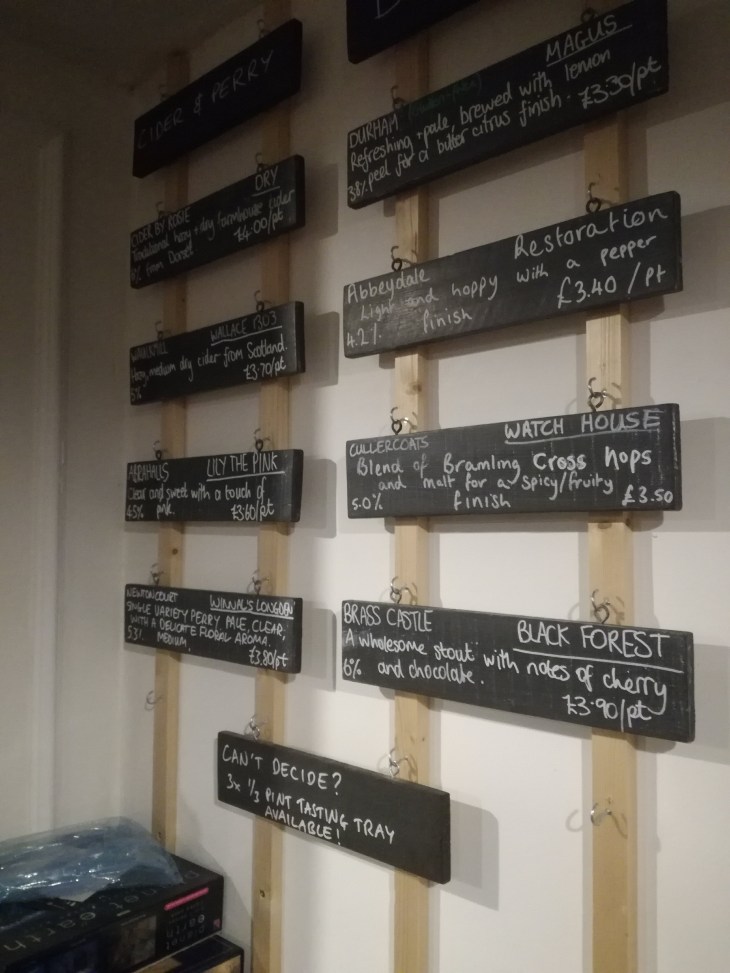 CIDER & PERRY
DRY
CIDER BY ROSIE
Traditional hazy + dry farmhouse cider
from Dorset £4.00/pt
WALLACE 1303
Hazy, medium dry cider from Scotland.
5% £3.70/pt
ABRAHALLS LILY THE PINK
Clear and sweet with a touch of
4.5% pink. £3.60/pt
NEWTONCOURT WINNAL'S LONGDON
SINGLE VARIETY PERRY. PALE, CLEAR,
WITH A DELICATE FLORAL AROMA.
5.3% MEDIUM. £3.80/pt
MAGUS
DURHAM
Refreshing pale, brewed with lemon
3.8% peel for a bitter citrus finish. £3.30/pt
Restoration
Abbeydale
Light and hoppy with a pepper
4.2% finish £3.40/pt
CULLERCOATS WATCH HOUSE
Blend of Bramling Cross hops
and malt for a spicy/fruity
5.0% finish £3.50
BRASS CASTLE BLACK FOREST
A wholesome stout with notes of cherry
6% and chocolate. £3.90/pt
CAN'T DECIDE?
3x 1/3 PINT TASTING TRAY
AVAILABLE!
planet earth